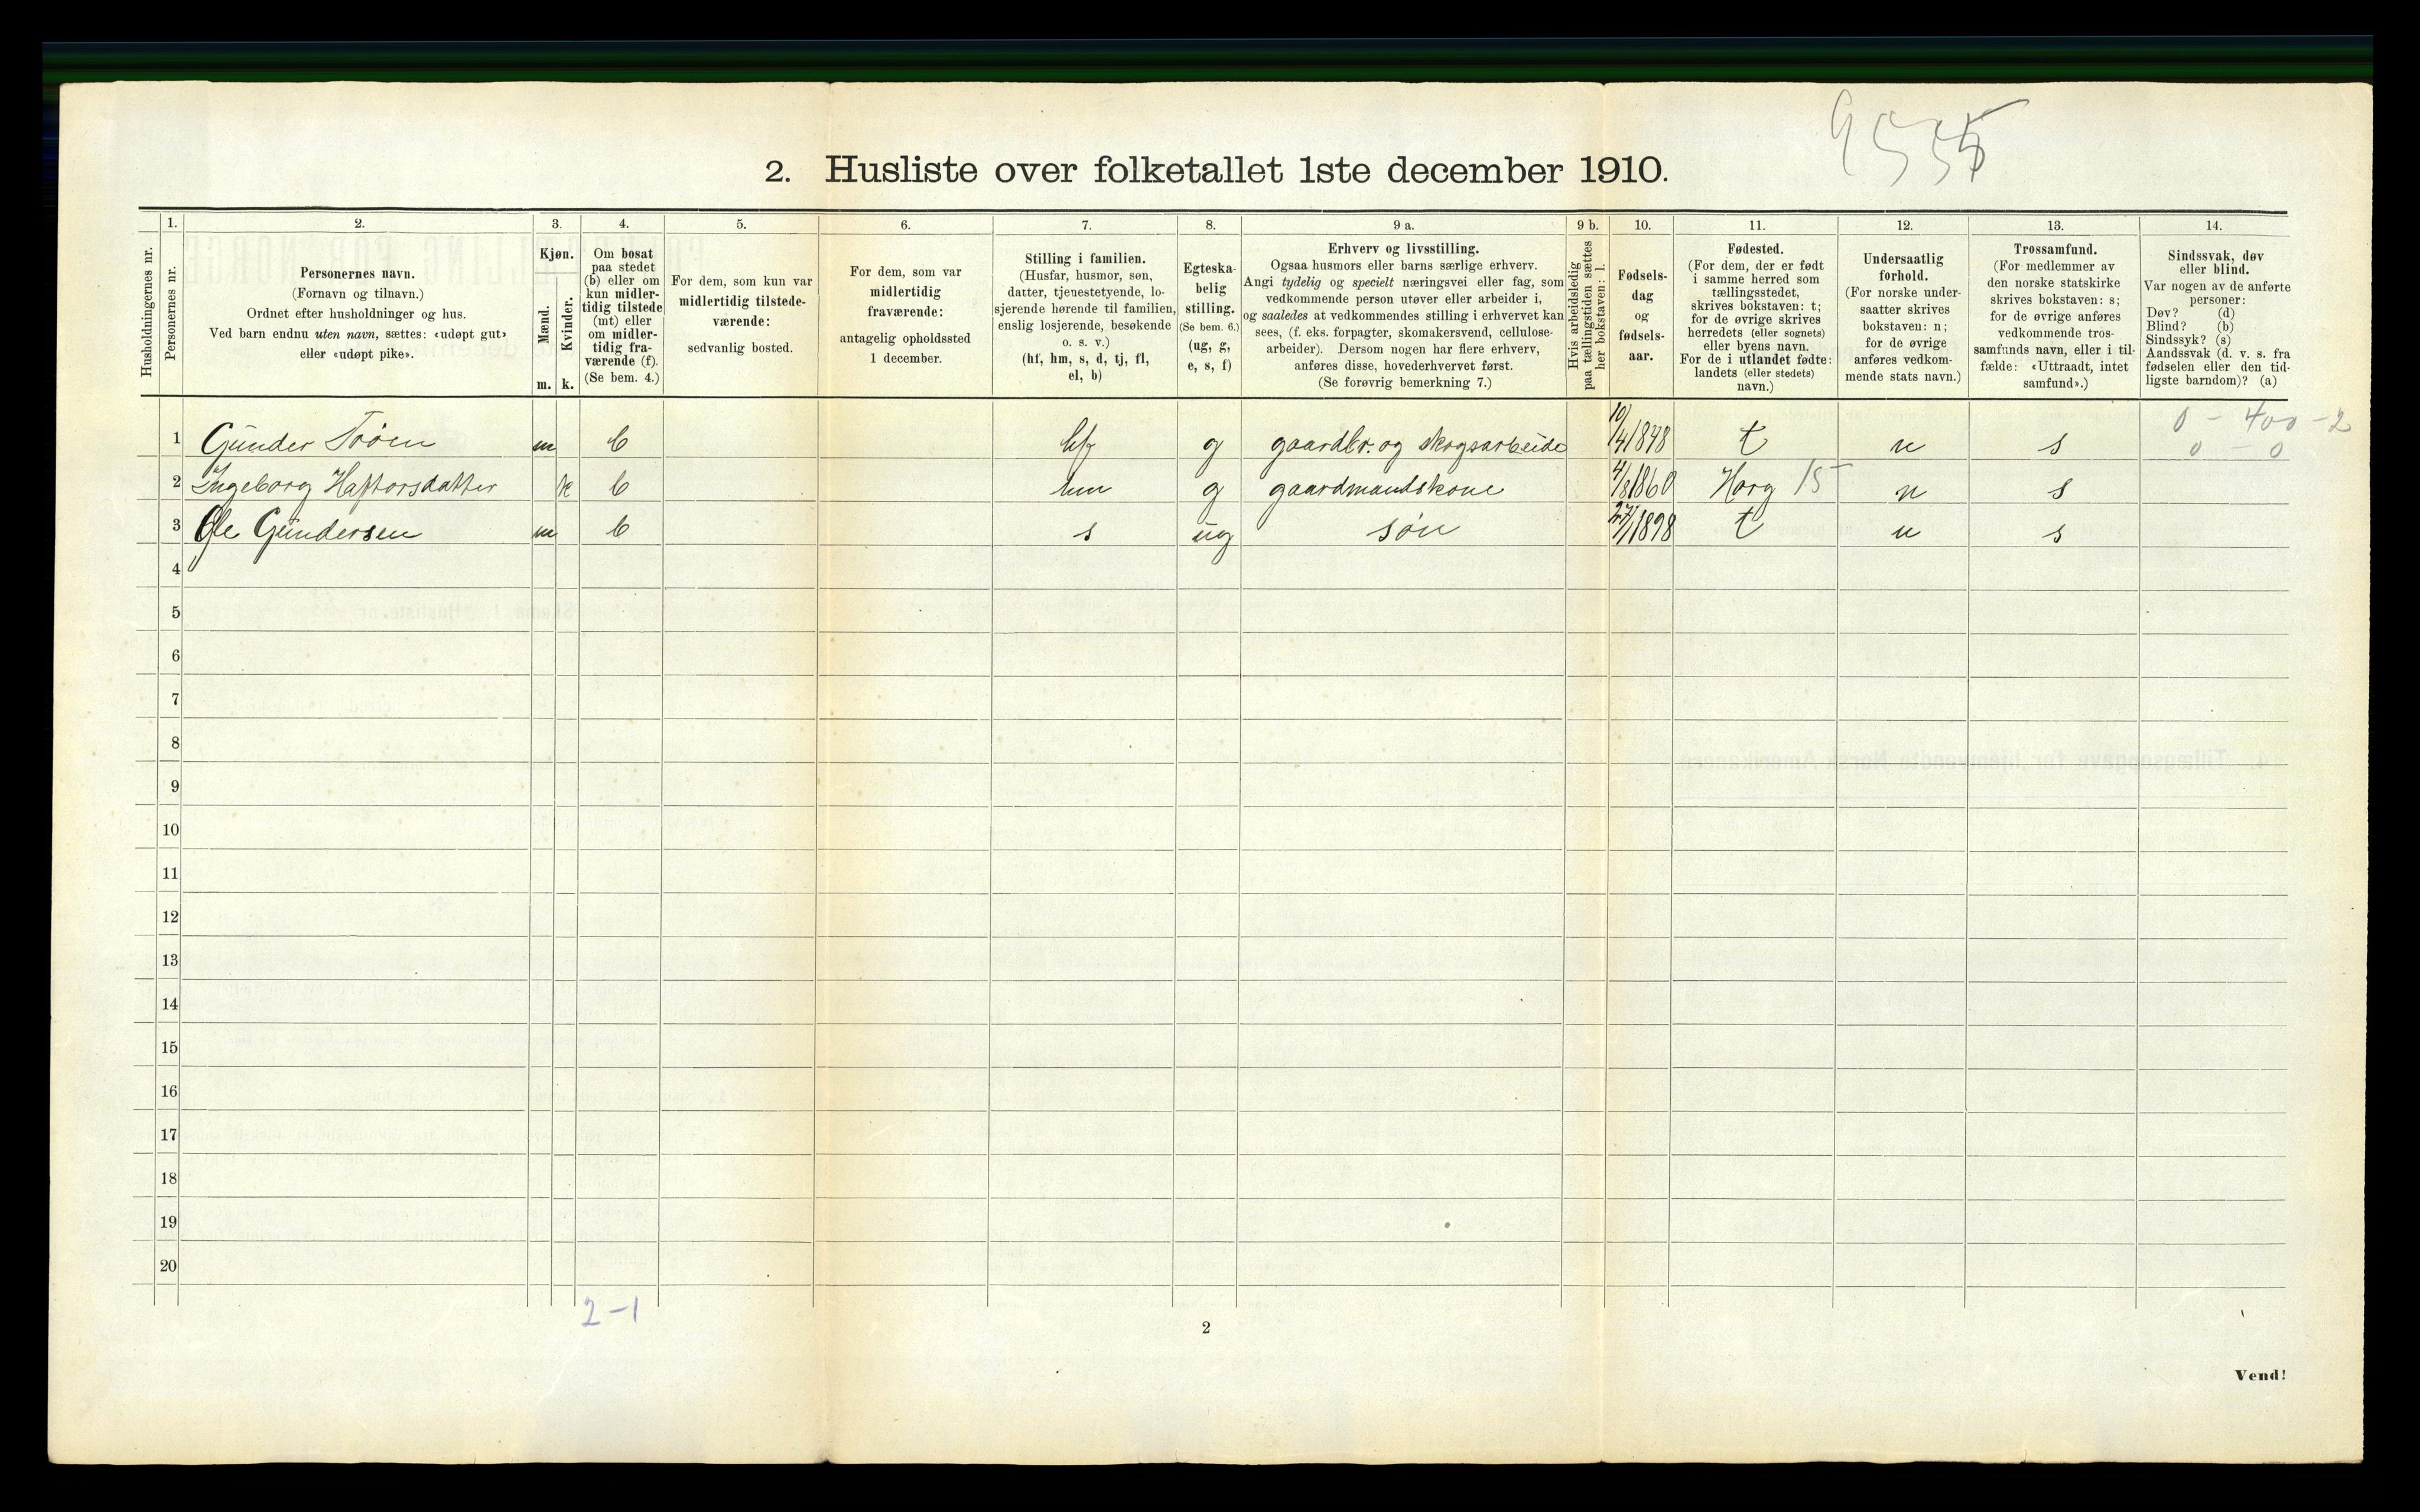 9555
2. Husliste over folketallet 1ste december 1910.
1. 2. 3. 4. 5. 6. 7. 8. 9 a. 9 b. 10. 11. 12. 13. 14.
Husholdningernes nr.
Personernes nr.
Personernes navn.
(Fornavn og tilnavn.)
Ordnet efter husholdninger og hus.
Ved barn endnu uten navn, sættes: «udøpt gut»
eller «udøpt pike».
Kjøn.
Mænd.
Kvinder.
m. k.
Om bosat
paa stedet
(b) eller om
kun midler-
tidig tilstede
(mt) eller
om midler-
tidig fra-
værende (f).
(Se bem. 4.)
For dem, som kun var
midlertidig tilstede-
værende:
sedvanlig bosted.
For dem, som var
midlertidig
fraværende:
antagelig opholdssted
1 december.
Stilling i familien.
(Husfar, husmor, søn,
datter, tjenestetyende, lo-
sjerende hørende til familien,
enslig losjerende, besøkende
o. s. v.)
(hf, hm, s, d, tj, fl,
el, b)
Egteska-
belig
stilling.
(Se bem. 6.)
(ug, g,
e, s, f)
Erhverv og livsstilling.
Ogsaa husmors eller barns særlige erhverv.
Angi tydelig og specielt næringsvei eller fag, som
vedkommende person utøver eller arbeider i,
og saaledes at vedkommendes stilling i erhvervet kan
sees, (f. eks. forpagter, skomakersvend, cellulose-
arbeider). Dersom nogen har flere erhverv,
anføres disse, hovederhvervet først.
(Se forøvrig bemerkning 7.)
Hvis arbeidsledig
paa tællingstiden sættes
her bokstaven: l.
Fødsels-
dag
og
fødsels-
aar.
Fødested.
(For dem, der er født
i samme herred som
tællingsstedet,
skrives bokstaven: t;
for de øvrige skrives
herredets (eller sognets)
eller byens navn.
For de i utlandet fødte:
landets (eller stedets)
navn.)
Undersaatlig
forhold.
(For norske under-
saatter skrives
bokstaven: n;
for de øvrige
anføres vedkom-
mende stats navn.)
Trossamfund.
(For medlemmer av
den norske statskirke
skrives bokstaven: s;
for de øvrige anføres
vedkommende tros-
samfunds navn, eller i til-
fælde: «Uttraadt, intet
samfund».)
Sindssvak, døv
eller blind.
Var nogen av de anførte
personer:
Døv? (d)
Blind? (b)
Sindssyk? (s)
Aandssvak (d. v. s. fra
fødselen eller den tid-
ligste barndom)? (a)
0 - 400 - 2
1 Gunder Troøen m b hf g gaardbr. og skogsarbeide 10/4 1848 t n s 0 - 0
2 Ingeborg Haftorsdatter k b hm g gaardmandskone 4/8 1860 Horg 15 n s
3 Ole Gundersen m b s ug søn 27/1 1898 t n s
4
5
6
7
8
9
10
11
12
13
14
15
16
17
18
19
20
2-1
2
Vend!